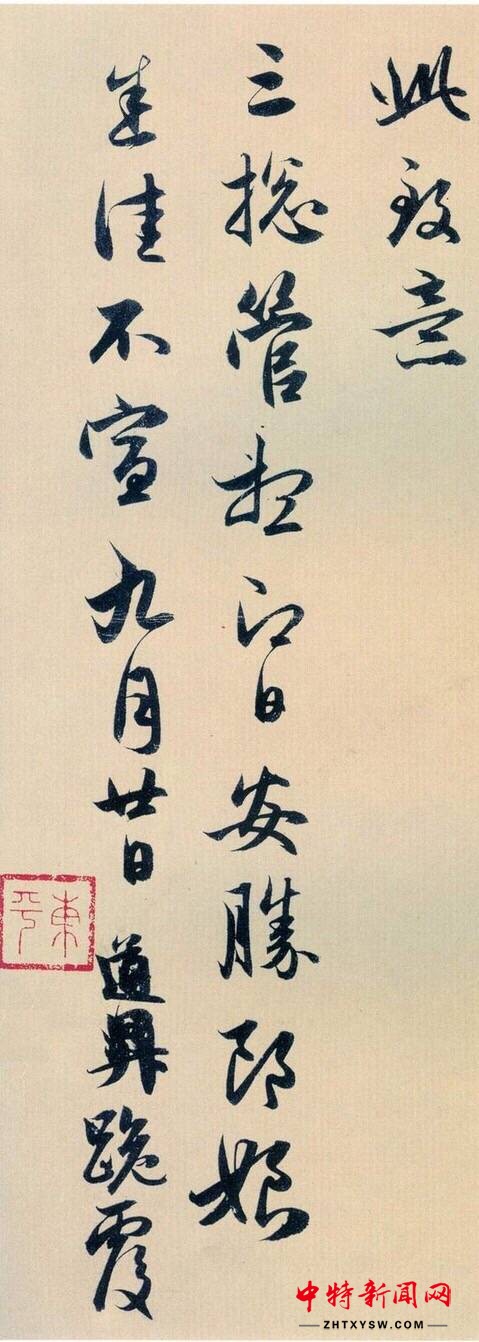 此致意
三揔管想即日安勝郎娘
悉佳不宣九月廿日道昇跪覆
東平
中特新闻网
ZHTXYSW.COM